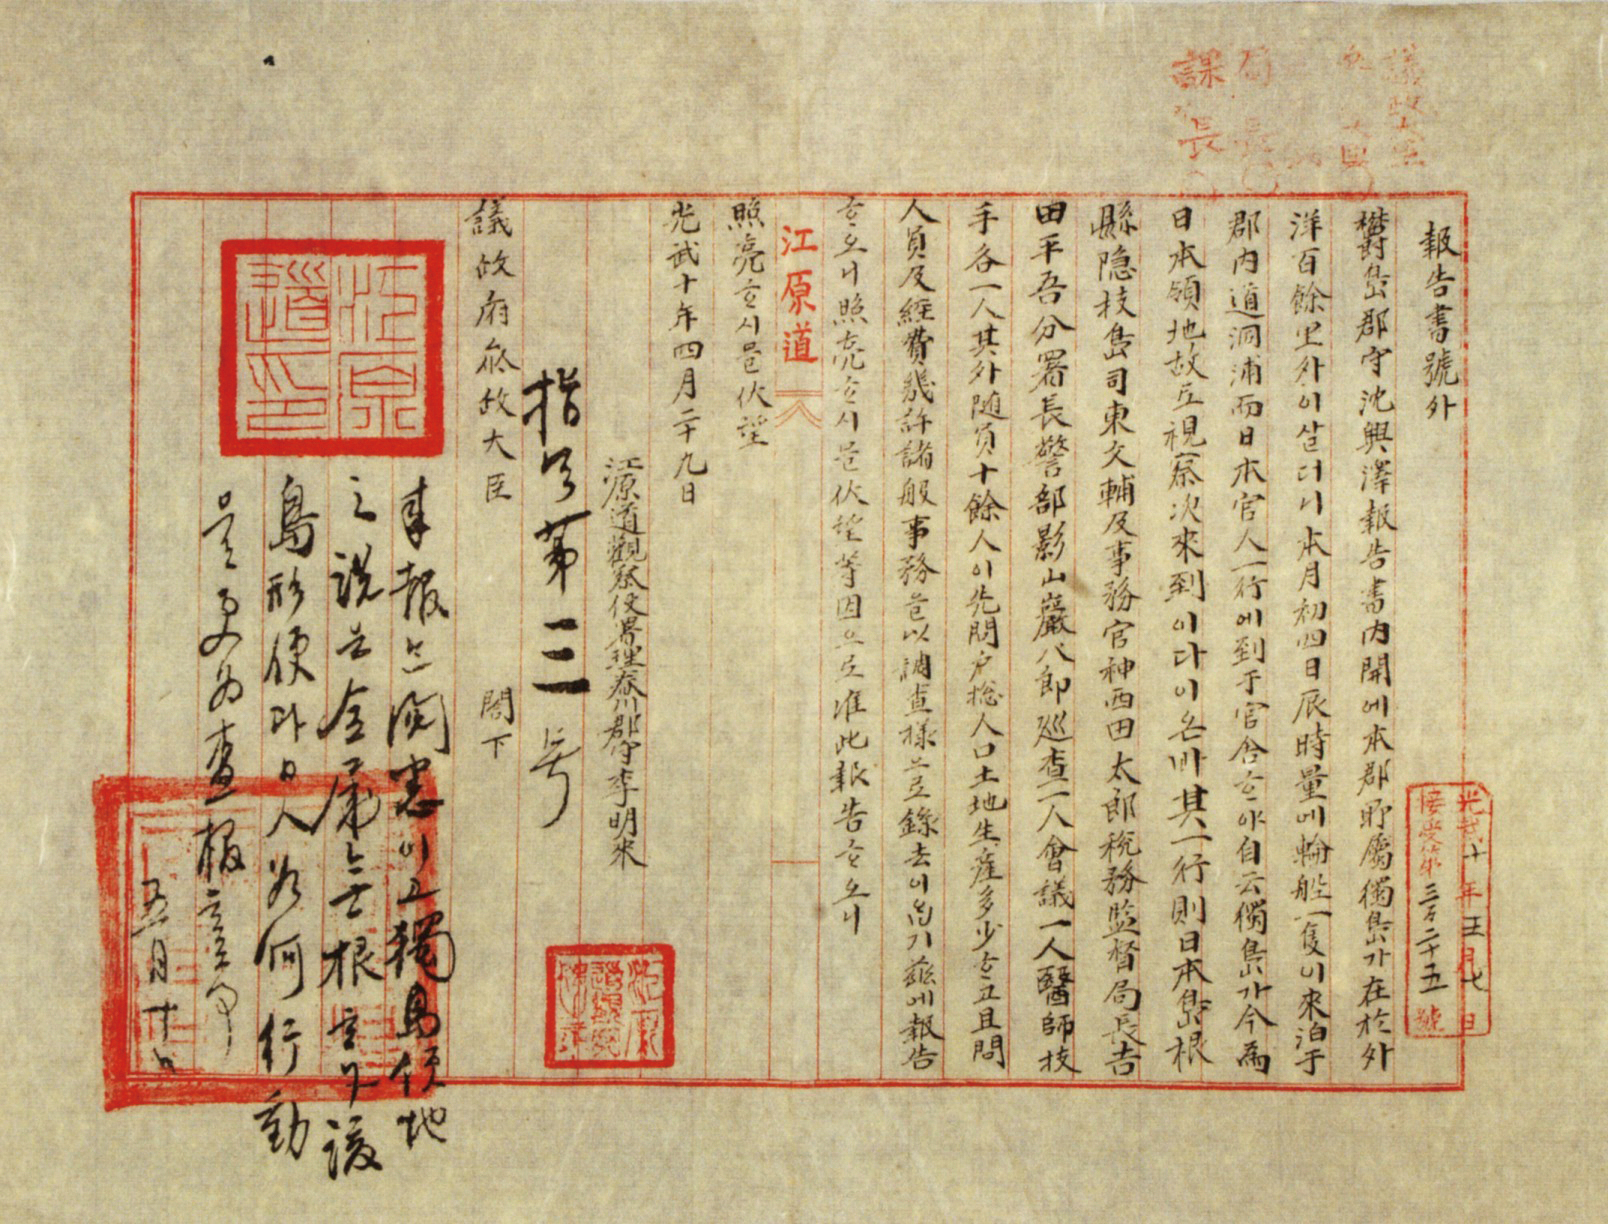 報告書號外
鬱島郡守沈興澤報告書內開에本郡所屬獨島가在於外
洋百餘里外이살더니本月初四日辰時量에輪船一隻이來泊于
郡內道洞浦而日本官人一行에到于官舍ᄒᆞ야自云獨島가今爲
日本領地故로視察次來到이다이온바其一行則日本島根
縣隱技島司東文輔及事務官神西田太郎稅務監督局長吉
田平吾分署長警部影山巖八郎巡査一人會議一人醫師技
手各一人其外随員十餘人이先問戶摠人口土地生産多少ᄒᆞ고且問
人員及經費幾許諸般事務을以調査樣으로錄去이ᄋᆞᆸ기玆에報告
ᄒᆞ오니照亮ᄒᆞ시믈伏望等因으로准此報告ᄒᆞ오니
江原道
照亮ᄒᆞ시믈伏望
光武十年四月二十九日
江原道觀察使署理春川郡守李明來
指令第三号
議政府參政大臣 閣下
來報는閱悉이고獨島領地
之說은全屬無根ᄒᆞ나該
島形便과日人如何行動
을更爲查報ᄒᆞᆯ事
五月十日
江原道印
光武十年五月七日
接受第三百二十五號
課長
局長